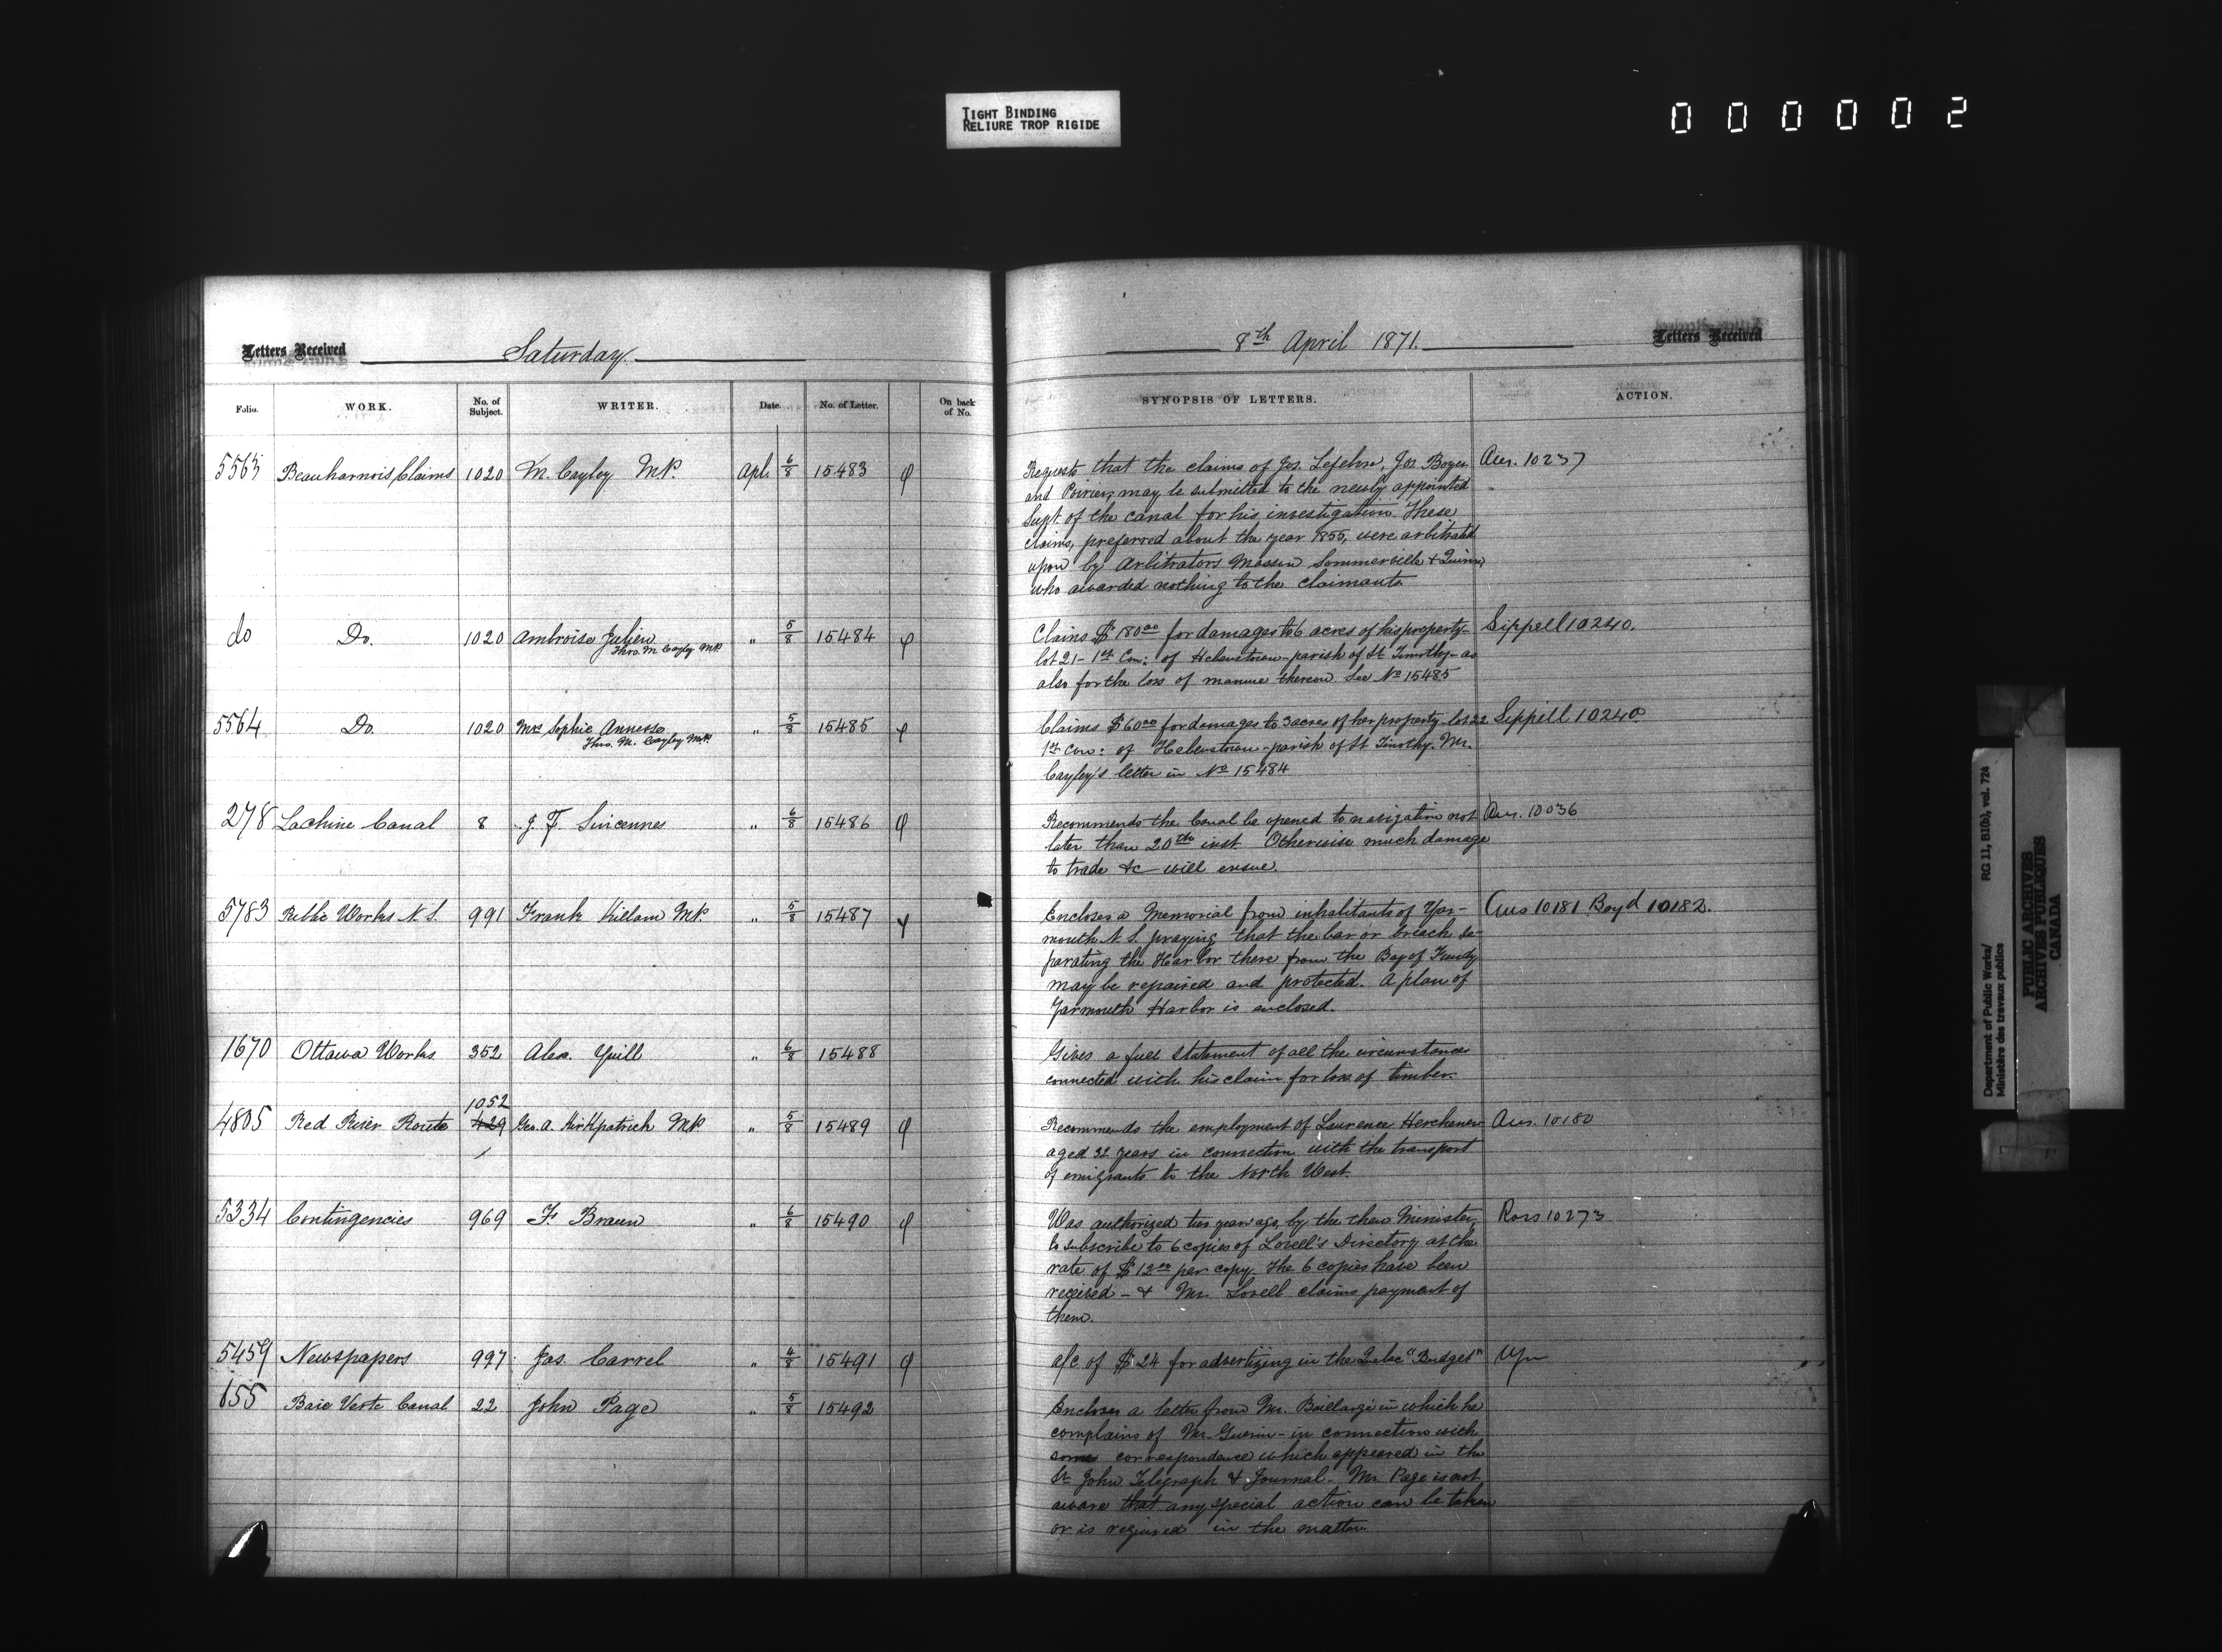 TIGHT BINDING
RELIURE TROP RIGIDE
000002
Letters Received Saturday
8th April 1871. Letters Received
Folio. WORK. No. of Subject. WRITER. Date. No. of Letter. On back of No.
SYNOPSIS OF LETTERS. ACTION.
5563 Beauharnois Claims 1020 M. Cayley MP. Apl. 6/8 15483 φ
Requests that the claims of Jos. Lefebvre, Jos. Boyer Ans. 10237
and Poirier, may be submitted to the newly appointed
Supt. of the canal for his investigation. These
claims, preferred about the year 1855, were arbitrated
upon by Arbitrators Masson Sommerville & Quinn,
who awarded nothing to the claimants
do Do. 1020 Ambroise Julien " 5/8 15484 φ
Thro. M Cayley MP.
Claims $180.00 for damages to 6 acres of his property Sippell 10240.
lot 21 - 1st Con: of Helenstown - parish of St Timothy - as
also for the loss of manure thereon. See No 15485
5564 Do. 1020 Mrs Sophie " 5/8 15485 φ
Thro. M. Cayley MP.
Claims $60.00 for damages to 3 acres of her property - lot 22 Sippell 10240
1st Con: of Helenstown - parish of St Timothy. Mr.
Cayley's letter in No 15484
278 Lachine Canal 8 J. F. Sincennes " 6/8 15486 φ
Recommends the Canal be opened to navigation not Ans. 10036
later than 20th inst. Otherwise much damage
to trade &c will ensue.
5783 Public Works N.S. 991 Frank Killam MP. " 5/8 15487 φ
Encloses a Memorial from inhabitants of Yar- Ans 10181 Boyd 10182.
mouth N.S. praying that the bar or breach se-
parating the Harbor there from the Bay of Fundy
may be repaired and protected. A plan of
Yarmouth Harbor is enclosed.
1670 Ottawa Works 352 Alex. Yuill " 6/8 15488
Gives a full statement of all the circumstances
connected with his claim for loss of timber.
1052
4805 Red River Route 429 Geo. A. Kirkpatrick MP. " 5/8 15489 φ
Recommends the employment of Laurence Herchemer Ans. 10180
aged 32 years in connection with the transport
of emigrants to the North West.
5334 Contingencies 969 F. Braun " 6/8 15490 φ
Was authorized two years ago, by the then Minister, 10273
to subscribe to 6 copies of Lovell's Directory at the
rate of $12.00 per copy. The 6 copies have been
received - & Mr. Lovell claims payment of
them.
5459 Newspapers 997 Jas. Carrel " 4/8 15491 φ
a/c of $24 for advertizing in the Quebec "Budget"
155 Baie Verte Canal 22 John Page " 5/8 15492
Encloses a letter from Mr. Baillargé in which he
complains of Mr. Guerin - in connection with
some correspondence which appeared in the
St John Telegraph & Journal. Mr. Page is not
aware that any special action can be taken
or is required in the matter.
Department of Public Works/ RG 11, B1(b), vol. 724
Ministère des travaux publics
PUBLIC ARCHIVES
ARCHIVES PUBLIQUES
CANADA